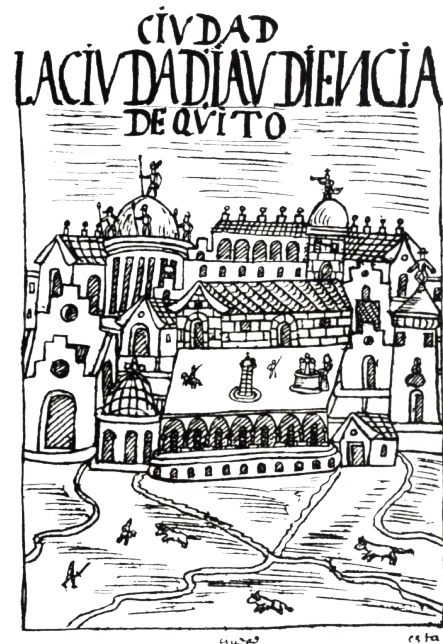 CIVDAD
LACIVDADİIAVDİENCIA
DE QVİTO
ciudad
esta